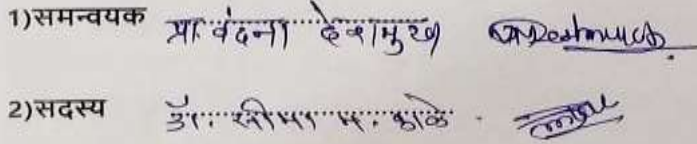 1)समन्वयक प्रा वंदना देशमुख
2)सदस्य डॉ. सीमा म. काळे